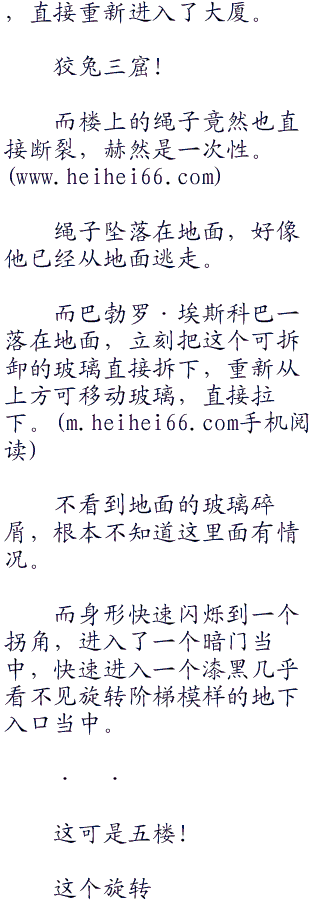 ，直接重新进入了大厦。
狡兔三窟！
而楼上的绳子竟然也直
接断裂，赫然是一次性。
(www.heihei66.com)
绳子坠落在地面，好像
他已经从地面逃走。
而巴勃罗·埃斯科巴一
落在地面，立刻把这个可拆
卸的玻璃直接拆下，重新从
上方可移动玻璃，直接拉
下。(m.heihei66.com手机阅
读)
不看到地面的玻璃碎
屑，根本不知道这里面有情
况。
而身形快速闪烁到一个
拐角，进入了一个暗门当
中，快速进入一个漆黑几乎
看不见旋转阶梯模样的地下
入口当中。
· ·
这可是五楼！
这个旋转